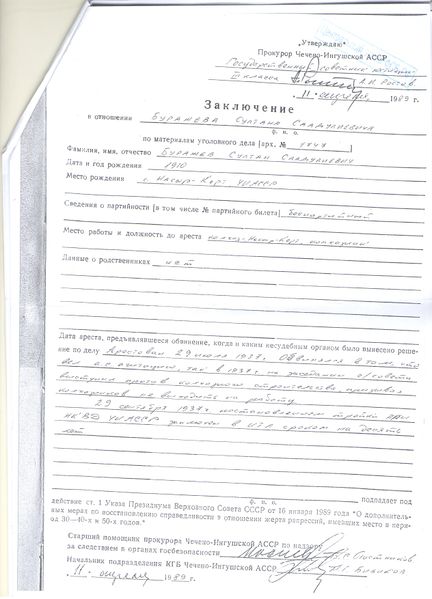 „Утверждаю"
Прокурор Чечено-Ингушской АССР
Государственный советник юстиции
III класса А.И. Ростов.
„11" апреля 1989 г.
Заключение
в отношении Буражева Султана Саадулиевича
ф. и. о.
по материалам уголовного дела [арх. №
Фамилия, имя, отчество Буражев Султан Саадулиевич
Дата и год рождения 1910
Место рождения с. Насыр-Корт ЧИАССР
Сведения о партийности [в том числе № партийного билета] беспартийный
Место работы и должность до ареста колхоз Насыр-Корт, колхозник
Данные о родственниках нет
Дата ареста, предъявлявшееся обвинение, когда и каким несудебным органом было вынесено реше-
ние по делу Арестован 29 июля 1937г. Обвинялся в том, что
вел а.с. агитацию, так в 1937г. на заседании с/совета
выступил против колхозного строительства, призывал
колхозников не выходить на работу.
29 сентября 1937г. постановлением тройки при
НКВД ЧИАССР заключен в ИТЛ сроком на десять
лет
ф. и. о. подпадает под
действие ст. 1 Указа Президиума Верховного Совета СССР от 16 января 1989 года "О дополнитель-
ных мерах по восстановлению справедливости в отношении жертв репрессий, имевших место в пери-
од 30—40-х и 50-х годов."
Старший помощник прокурора Чечено-Ингушской АССР по надзору
за следствием в органах госбезопасности
Начальник подразделения КГБ Чечено-Ингушской АССР
„11" апреля 1989 г.